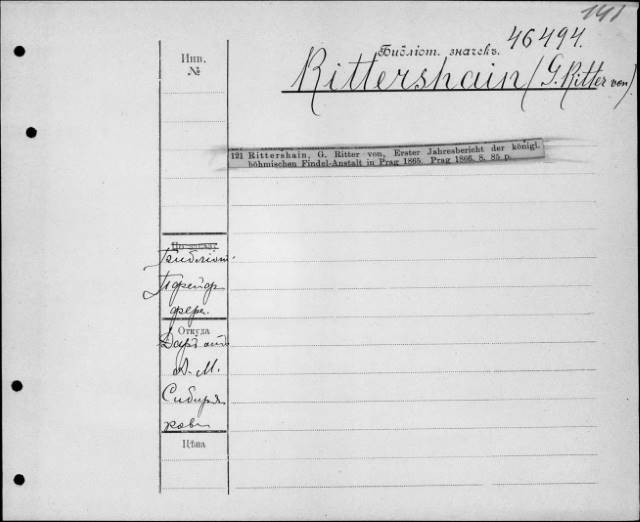 141
Библіот. значекъ. 46494.
Инв.
№
Rittershain (G. Ritter von).
121 Rittershain, G. Ritter von, Erster Jahresbericht der königl.
böhmischen Findel-Anstalt in Prag 1865. Prag 1866. 8. 85 p.
Библіот.
Пфейф
фера.
Откуда
Даръ
А. М.
Сибиря
кова
Цѣна